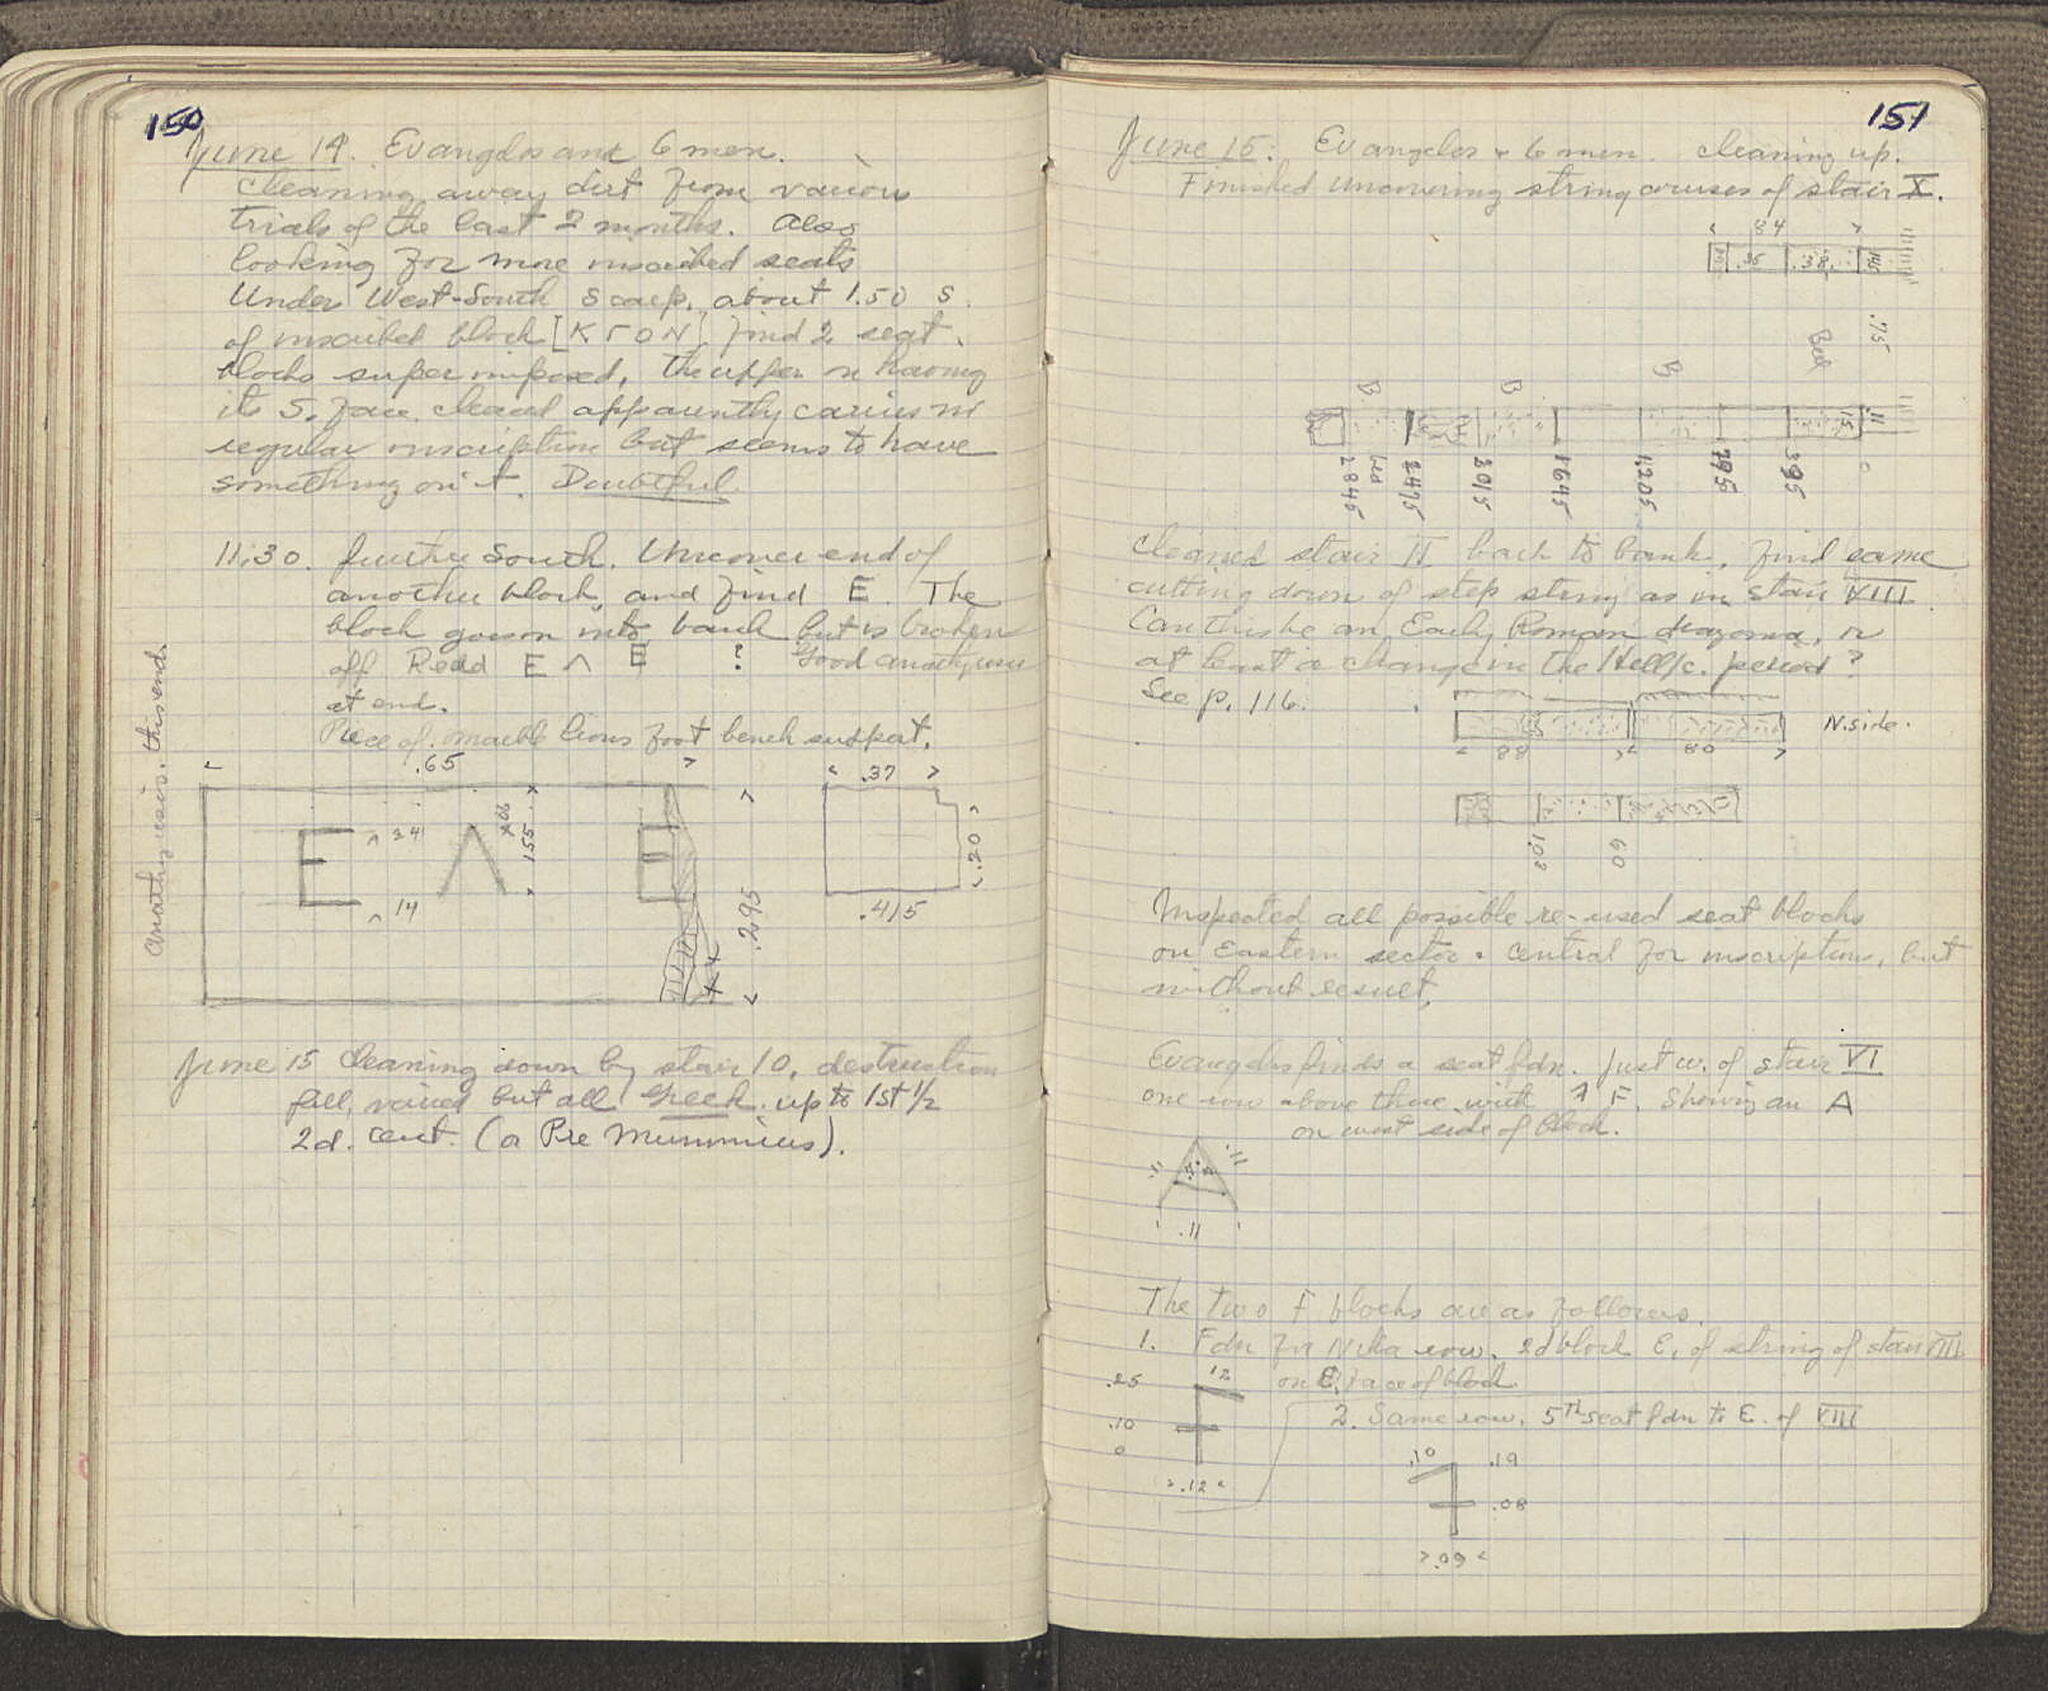 150
June 14. Evangelos and 6 men.
Cleaning away dirt from various
trials of the last 2 months. Also
looking for more inscribed seats
Under West-South Scarp, about 1.50 S.
of inscribed block [ΚΓΟΝ] find 2 seat
blocks superimposed, the upper on having
its S. face cleared apparently carries no
regular inscription but seems to have
something on it. Doubtful.
11:30. further South. Uncover end of
another block, and find E. The
block goes on into bank but is broken
off Read E Λ E ? Good anathyrosis
at end.
Piece of marble lions foot bench support.
anathyrosis. this end.
.65
.37
E Λ E
34
14
.06
.155
.295
.20
.415
June 15 Cleaning down by stair 10, destruction
fill, mixed but all Greek. up to 1st 1/2
2d. cent. (or Pre Mummius).
151
June 15: Evangelos + 6 men. Cleaning up.
Finished uncovering string courses of stair X.
84
.35 .38 .145
.75
B B B Bed
.15 .11
2845 bed 2475 2015 1645 1.205 .795 .395 0
Cleaned stair II back to bank, find same
cutting down of step string as in stair VIII.
Can this be an Early Roman diazoma, or
at least a change in the Hell/c. period?
See p. 116.
N. side.
88 80
1.03 60
Inspected all possible re-used seat blocks
on Eastern sector + central for inscriptions, but
without result.
Evangelos finds a seat fdn. just w. of stair VI
one row above those with F. Showing an A
on west side of block.
.11
.11
.11
The two F blocks are as follows.
1. Fdn for Nika row. 2d block E. of string of stair VIII
on E. face of block
.25
12
.10
0
.12
2. Same row, 5th seat fdn to E. of VIII
.10 .19
.08
.09